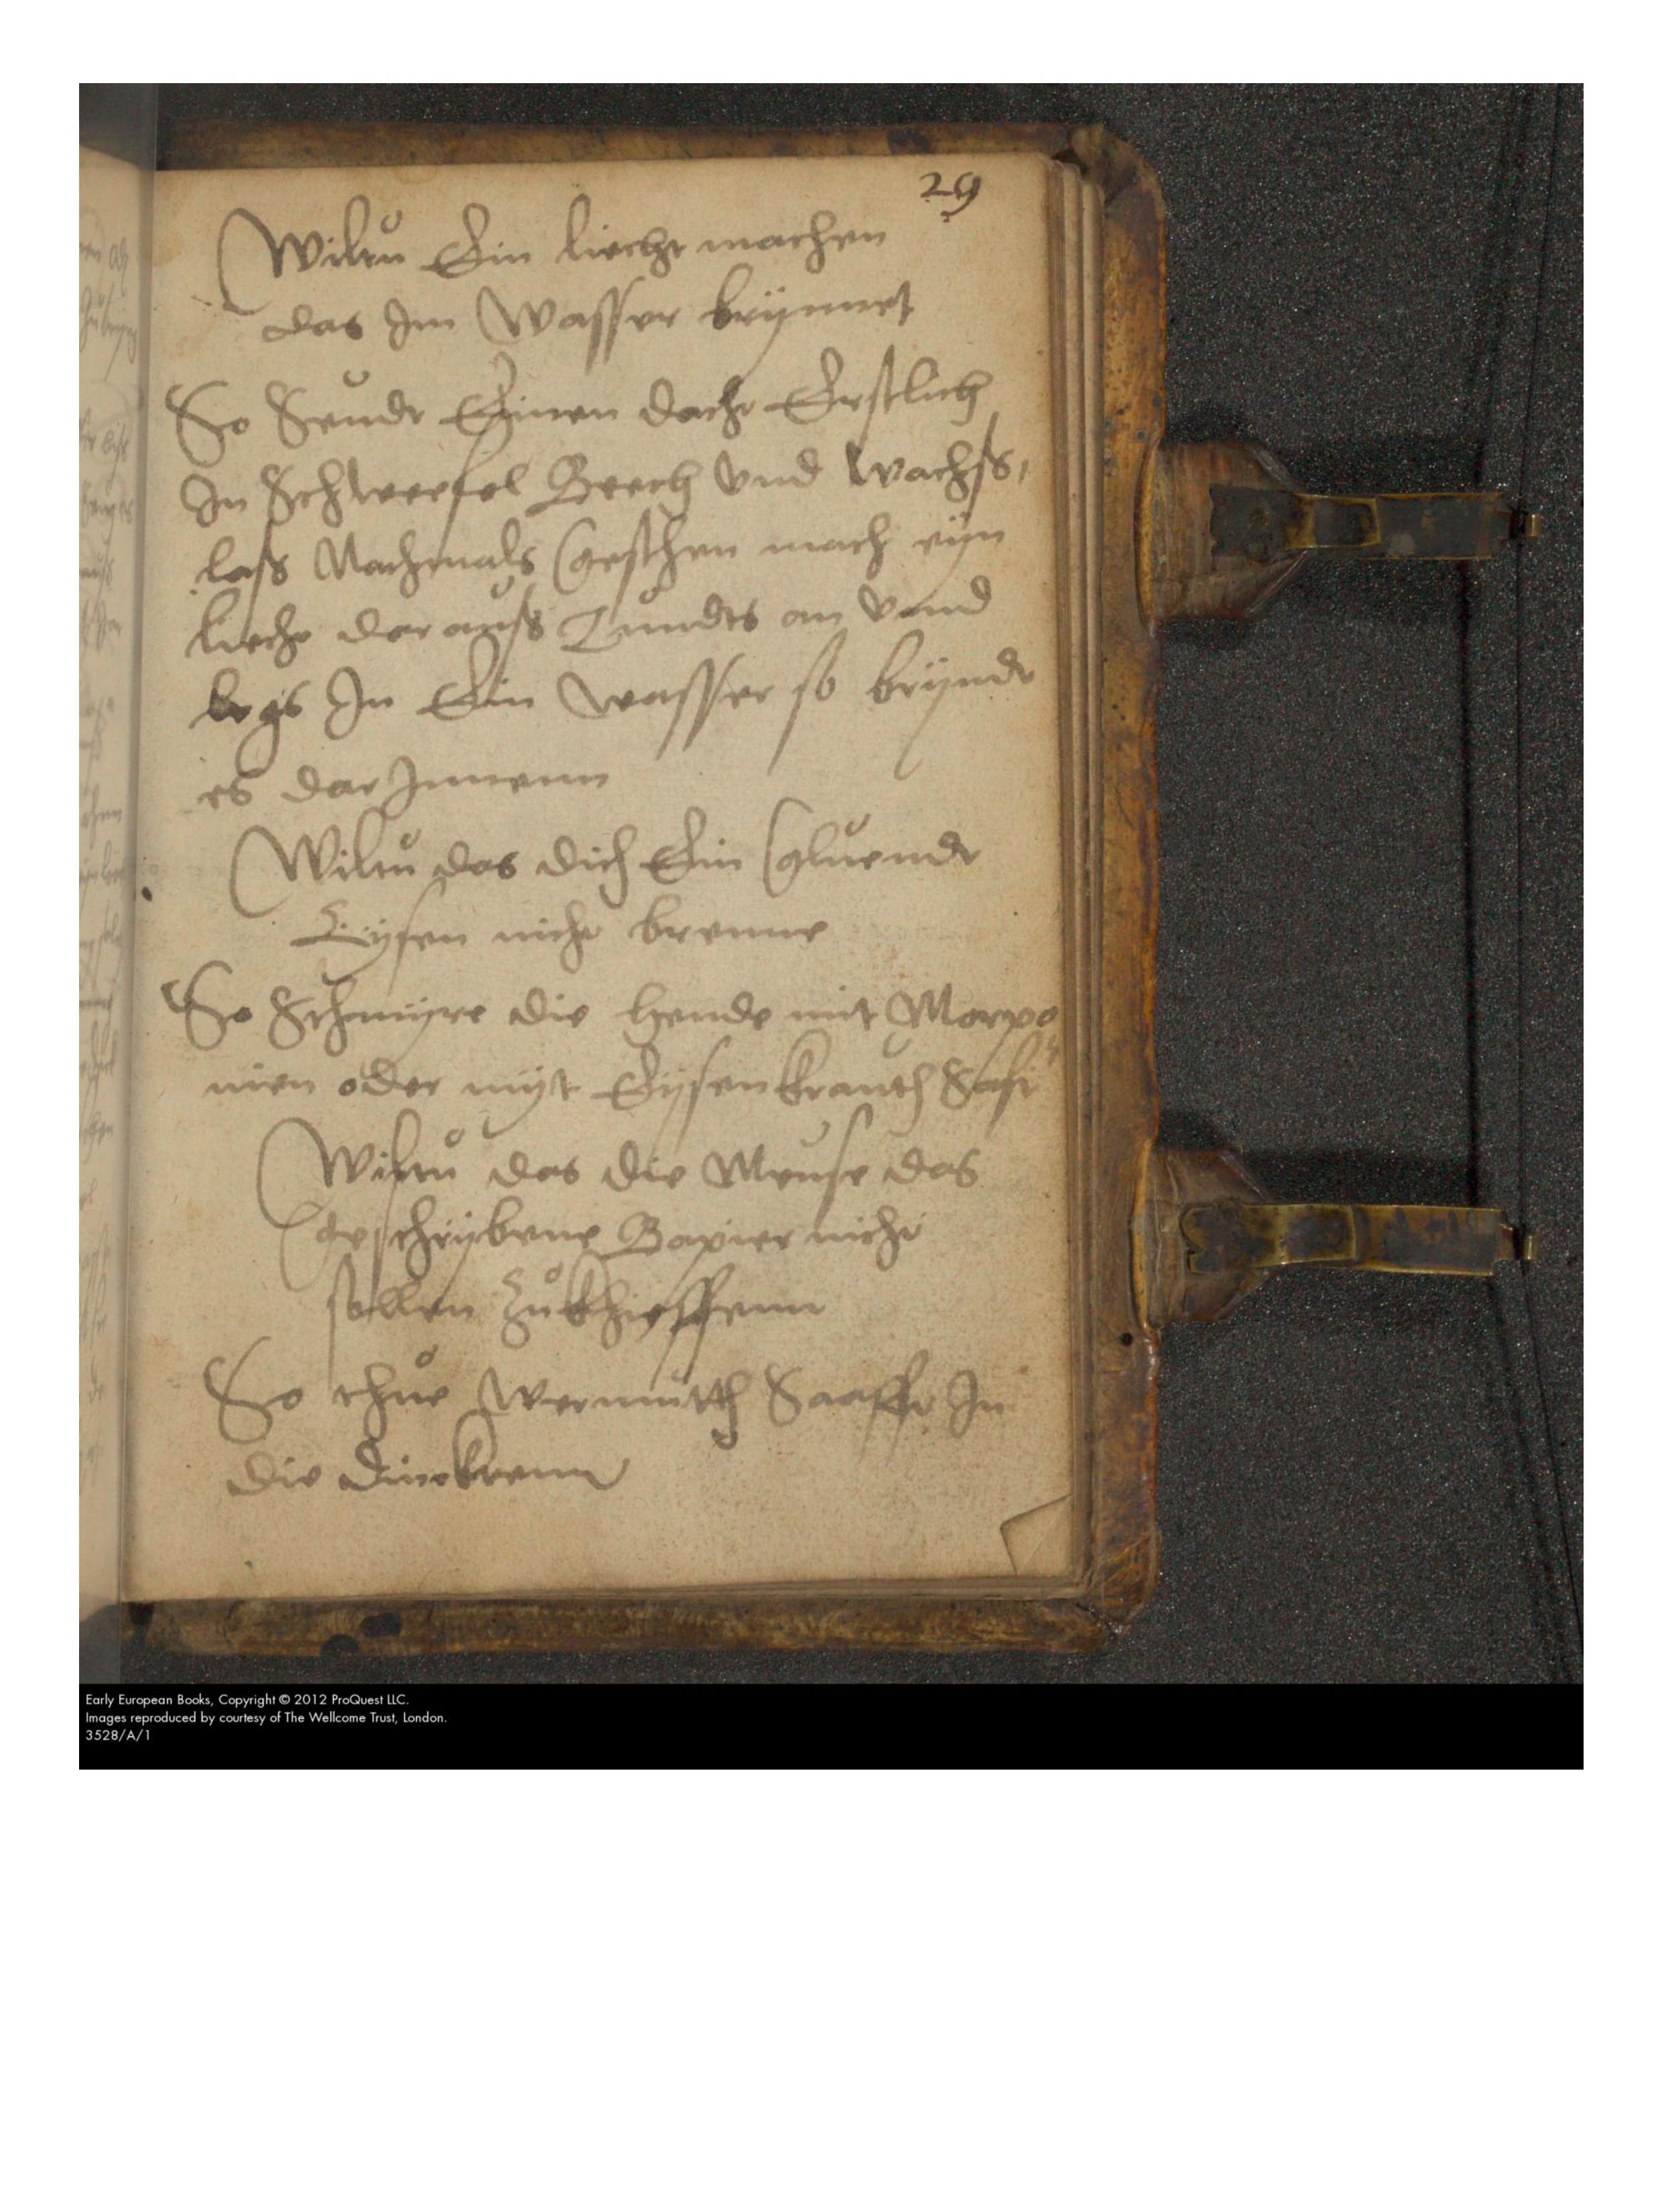 29
Wiltu Ein liecht machen
das Im Wasser brÿnnet
So Seudt Einen dacht Erstlich
In Schweefel Beech vnd Wachss,
lass Nachmals Gesthen mach eÿn
liecht dar auss Zundts an vnnd
legs In Ein wasser so brÿndt
es dar Innenn
Wiltu das dich Ein Gluendt
Eÿsen nicht brenne
So Schmÿre die hende mit
nien oder mÿt Eÿsenkrauth Saft
Wiltu das die Meuse das
Geschrÿbene Bapier nicht
sollen
So thue Wermutth Saafft In
die Dinckenn
Early European Books, Copyright © 2012 ProQuest LLC.
Images reproduced by courtesy of The Wellcome Trust, London.
3528/A/1